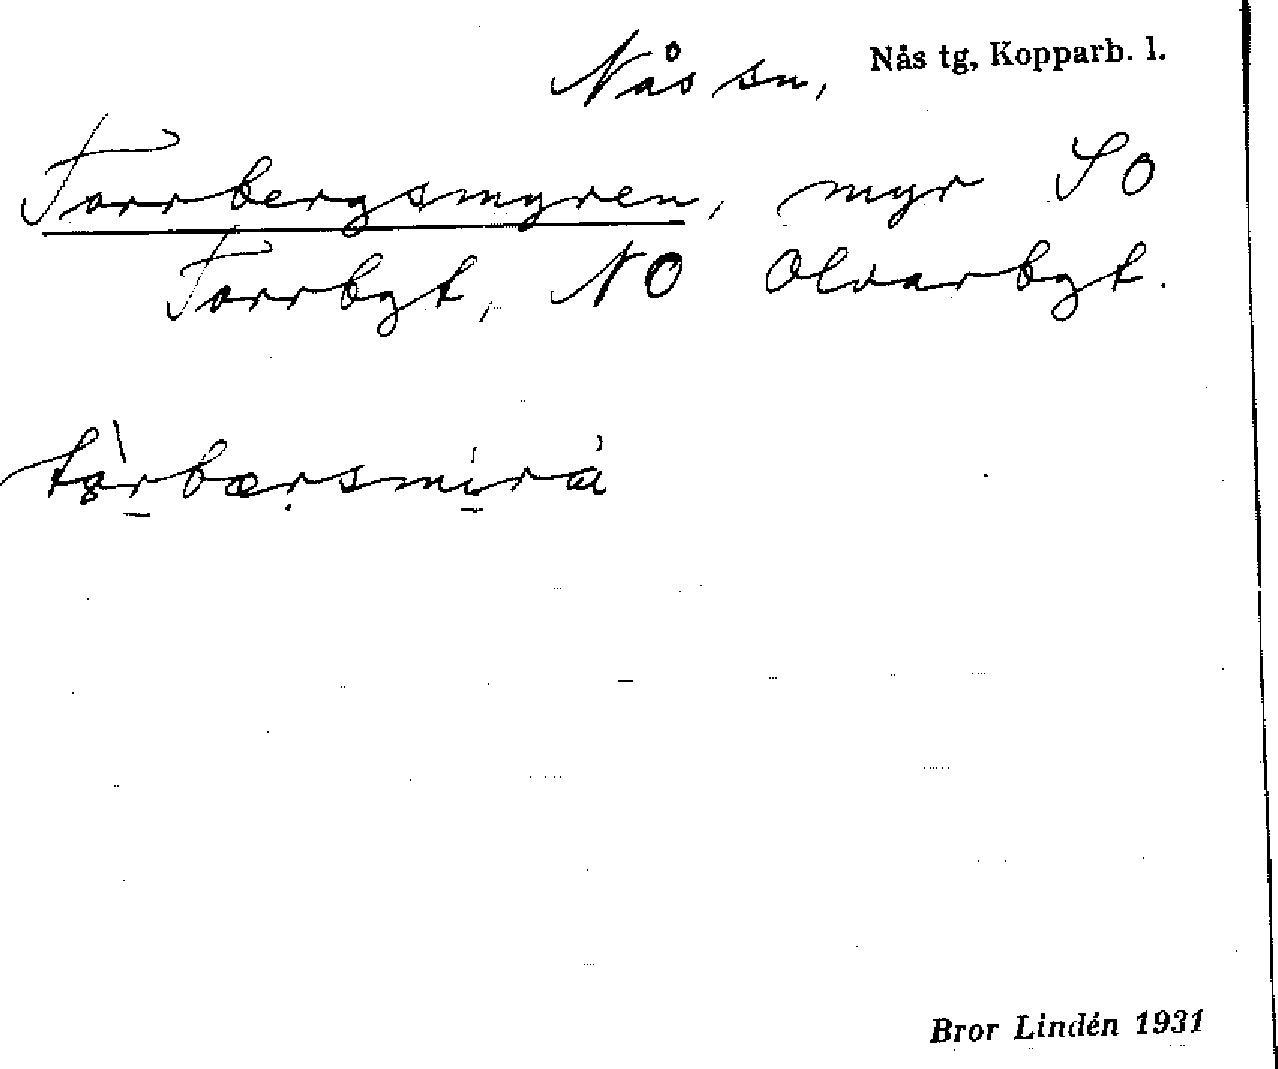 Nås sn, Nås tg, Kopparb. l.
Torrbergsmyren, myr SO
Torrbgt, NO Olvarbgt.
Bror Lindén 1931